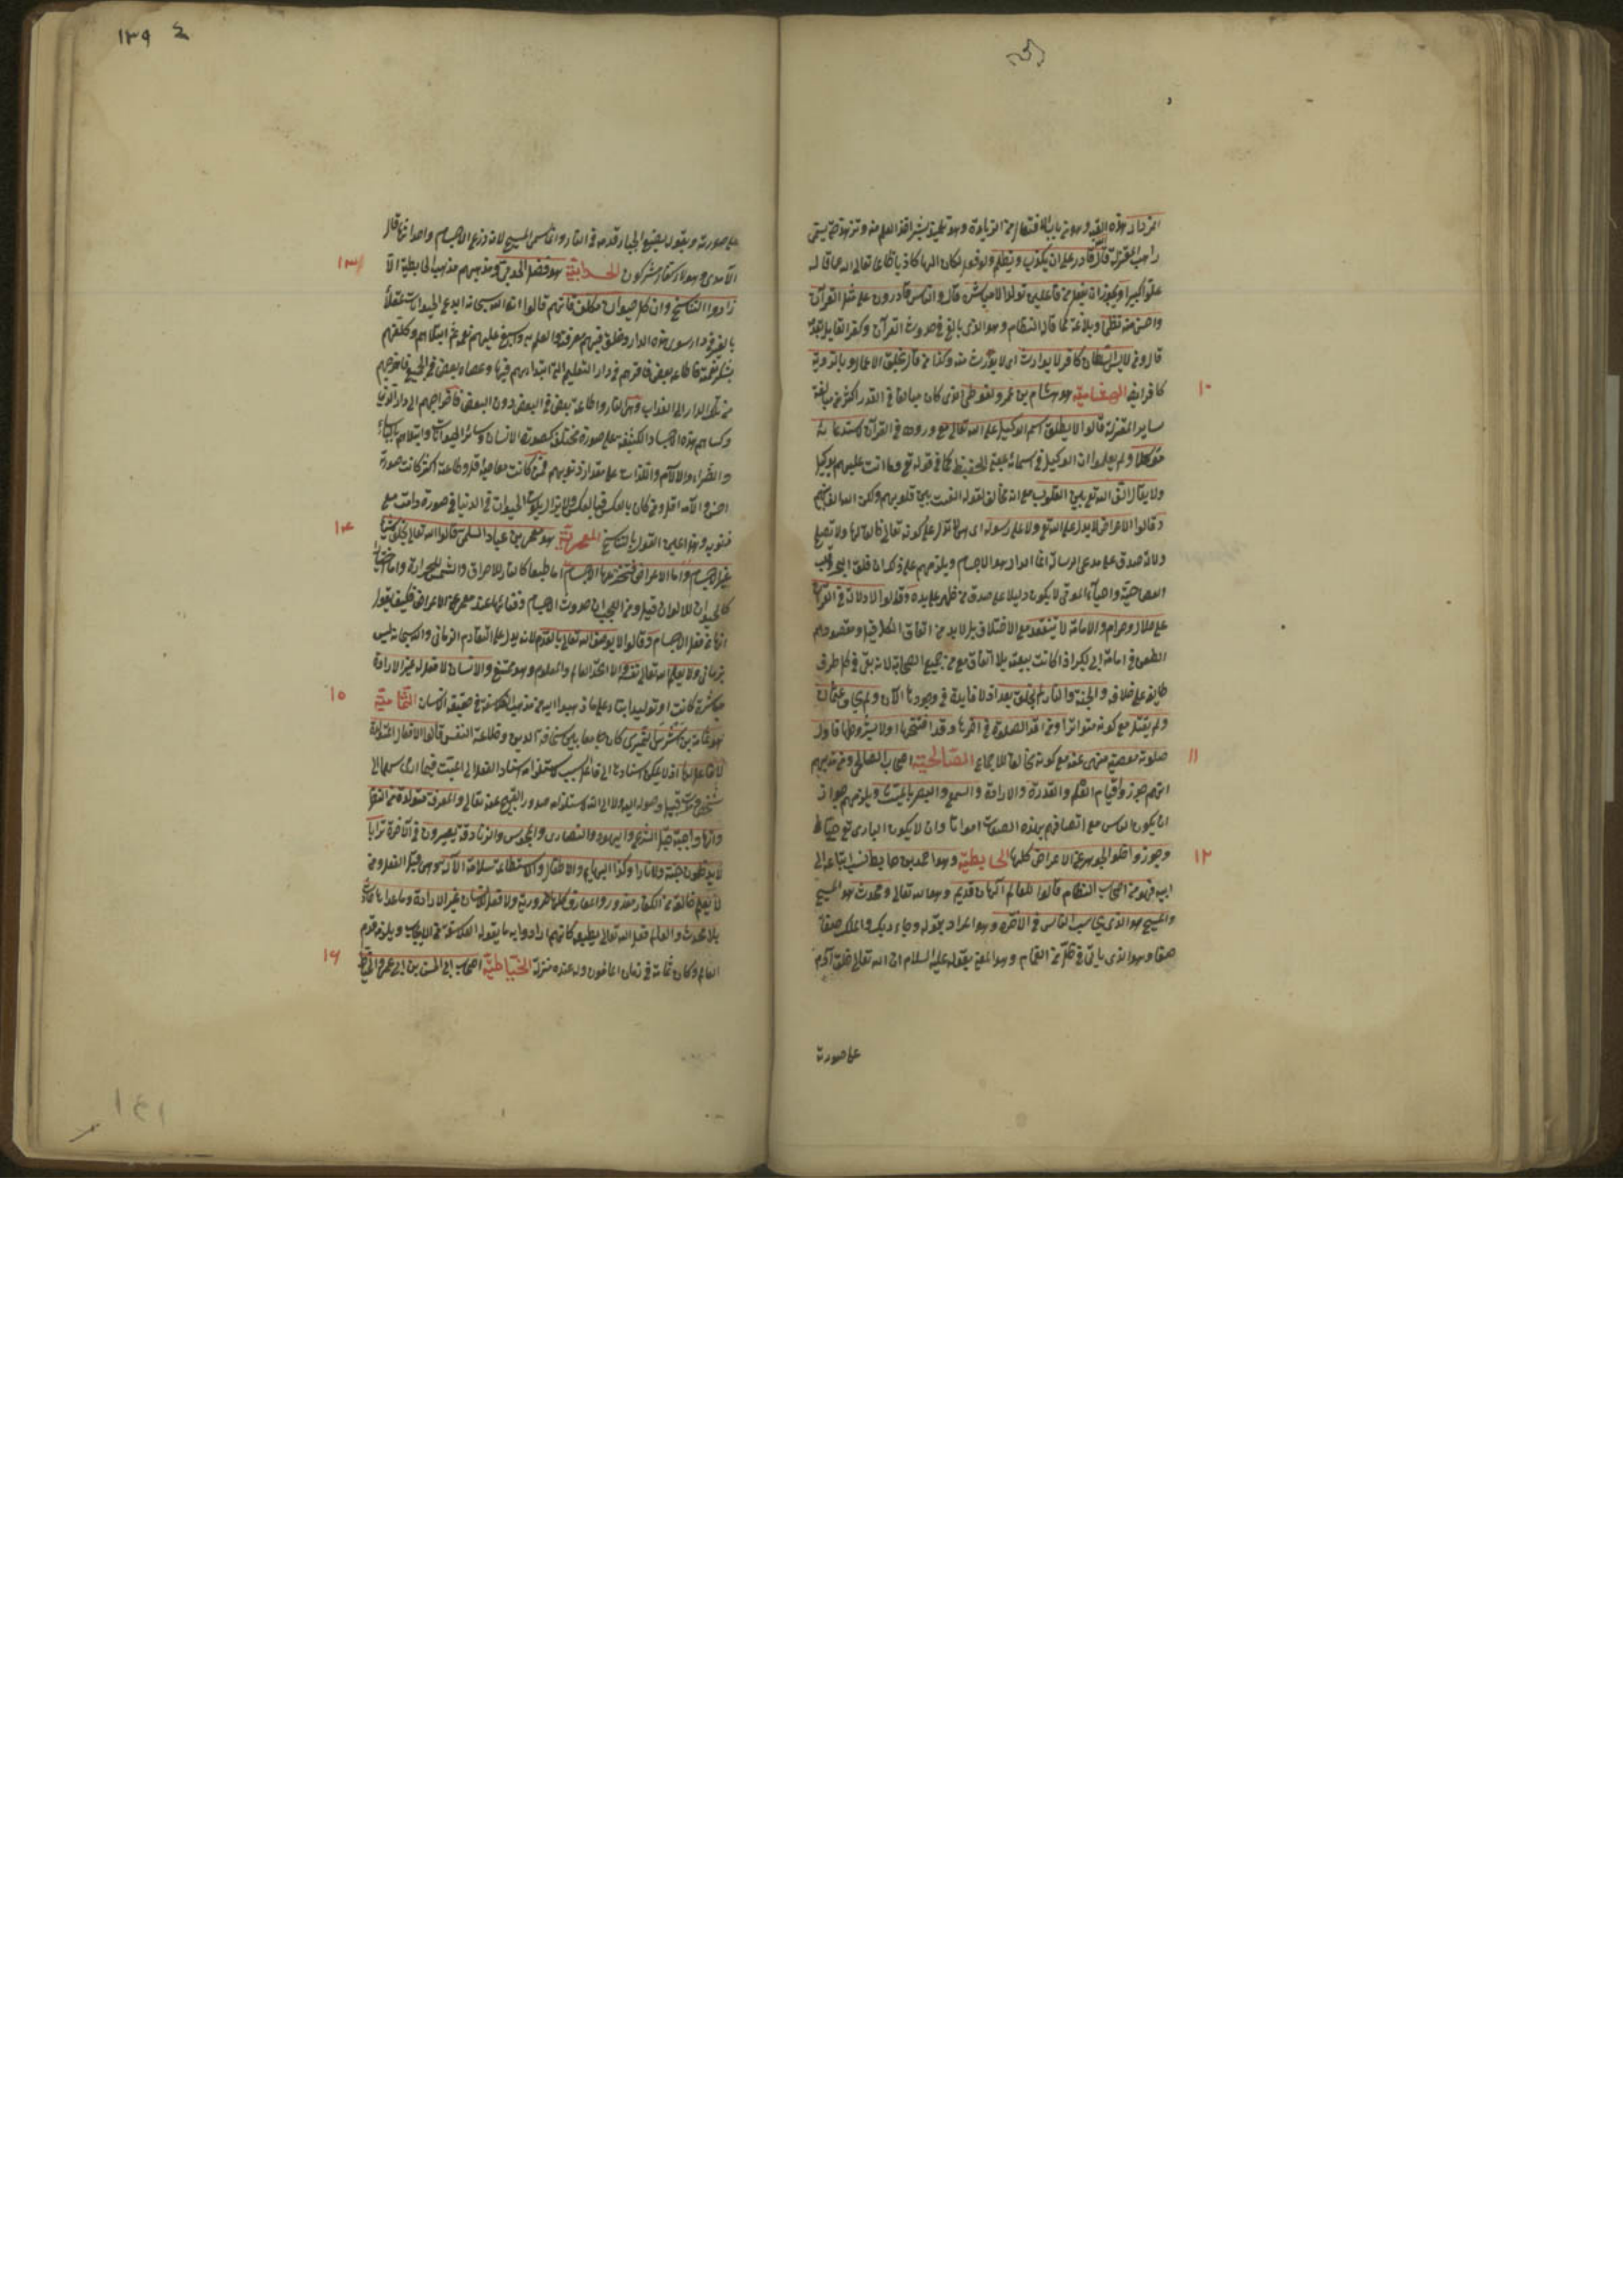 المزداد هذه لقبه وهو من باب الافتعال من الزيادة وهو تلميذ بشر اخذ العلم منه وتزهد حتى سمي
راهب المعتزلة قال الله قادر على ان يكذب ويظلم ولو فعل لكان الها كاذبا ظالما تعالى الله عما قاله
علوا كبيرا ويجوز ان يقع فعل من فاعلين تولدا لا مباشرة قال والناس قادرون على مثل القرآن
واحسن منه نظما وبلاغة كما قال النظام وهو الذي بالغ في حدوث القرآن وكفر القائل بقدمه
قال ومن لابس السلطان كافر لا يوارث اي لا يورث منه وكذا من قال بخلق الاعمال وبالروية
١٠
كافر ايضا الهشامية هو هشام بن عمرو الفوطي الذي كان مبالغا في القدر اكثر من مبالغة
ساير المعتزلة قالوا لا يطلق اسم الوكيل على الله تعالى مع وروده في القرآن لاستدعائه
موكلا ولم يعلموا ان الوكيل في اسمائه بمعنى الحفيظ كما في قوله تع وما انت عليهم بوكيل
ولا يقال الف الله تع بين القلوب مع انه مخالف لقوله ما الفت بين قلوبهم ولكن الله الف بينهم
وقالوا الاعراض لا يدل على الله تع ولا على رسوله اي هي لا تدل على كونه تعالى خالقا لها ولا تصلح
دلالات صدق على مدعي الرسالة انما الدال هو الاجسام ويلزمهم على ذلك ان فلق البحر وقلب
العصا حية واحياء الموتى لا يكون دليلا على صدق من ظهر على يده وقالوا لا دلالة في القرآن
على حلال وحرام والامامة لا تنعقد مع الاختلاف بل لا بد من اتفاق الكل قيل ومقصودهم
الطعن في امامة ابي بكر اذا كانت بيعته بلا اتفاق مع من جميع الصحابة لانه بقي في كل طرف
طايفة على خلافه والجنة والنار لم تخلقا بعد اذ لا فايدة في وجودهما الآن ولم يحاصر عثمان
ولم يقتل مع كونه متواترا ومن افسد الصلوة في اخرها وقد افتتحها اولا بشروطها فاول
١١
صلوته معصية منهي عنه مع كونه مخالفا للاجماع الصالحية اصحاب الصالحي ومن مذهبهم
انهم جوزوا قيام العلم والقدرة والارادة والسمع والبصر بالميت ويلزمهم جواز
ان يكون الناس مع اتصافهم بهذه الصفات امواتا وان لا يكون الباري تع حيا
١٢
وجوزوا خلو الجوهر عن الاعراض كلها الحايطية وهو احمد بن حايط نسب اتباعه الى
ابيه فهو من اصحاب النظام قالوا للعالم الهان قديم وهو الله تعالى ومحدث هو المسيح
والمسيح هو الذي يحاسب الناس في الآخرة وهو المراد بقوله وجاء ربك والملك صفا
صفا وهو الذي ياتي في ظلل من الغمام وهو المعني بقوله عليه السلام ان الله تعالى خلق آدم
على صورته
١٣٩
على صورته وبقوله يضع الجبار قدمه في النار وانما سمي المسيح لانه ذرع الاجسام واحدثها قال
١٣
الآمدي وهؤلاء كفار مشركون الحدابية هو فضل الحدبي ومذهبهم مذهب الحايطية الا
زادوا التناسخ وان كل حيوان مكلف فانهم قالوا ان الله سبحانه ابدع الحيوانات عقلاء
بالغين في دار سوى هذه الدار وخلق فيهم معرفته والعلم به واسبغ عليهم نعمه ثم ابتلاهم وكلفهم
بشكر نعمته فاطاعه بعض فاقرهم في دار النعيم التي ابتداهم فيها وعصاه بعض في الجميع فاخرجهم
من تلك الدار الى العذاب وهي النار واطاعه بعض في البعض دون البعض فاخرجهم الى دار الدنيا
وكساهم هذه الاجساد الكثيفة على صورة مختلفة كصورة الانسان وسائر الحيوانات وابتلاهم بالبأساء
والضراء والآلام واللذات على مقدار ذنوبهم فمن كانت معاصيه اقل وطاعته اكثر كانت صورته
احسن والامه اقل ومن كان بالعكس فبالعكس ولا يزال يكون الحيوان في الدنيا في صورة دامت معه
١٤
ذنوبه وهذا عين القول بالتناسخ المعمرية هو معمر بن عباد السلمي قالوا الله تعالى لم يخلق شيئا
غير الاجسام واما الاعراض فتخترعها الاجسام اما طبعا كالنار للاحراق والشمس للحرارة واما اختيارا
كالحيوان للالوان قيل ومن العجب ان حدوث الاجسام وفناءها عند معمر من الاعراض فكيف يقول
انها من فعل الاجسام وقالوا لا يوصف الله تعالى بالقدم لانه يدل على التقادم الزماني والله سبحانه ليس
بزماني ولا يعلم الله تعالى نفسه والا اتحد العالم والمعلوم وهو ممتنع والانسان لا فعل له غير الارادة
١٥
مباشرة كانت او توليدا بناء على ما ذهبوا اليه من مذهب الفلاسفة في حقيقة الانسان الثمامية
هو ثمامة بن اشرس النميري كان جامعا بين سخافة الدين وخلاعة النفس قالوا الافعال المتولدة
لا فاعل لها اذ لا يمكن اسنادها الى فاعل السبب لاستلزامه اسناد الفعل الى الميت فيما اذا رمى سهما الى
شخص ومات قبل وصوله اليه ولا الى الله لاستلزامه صدور القبيح عنه تعالى والمعرفة متولدة من النظر
وانها واجبة قبل الشرع واليهود والنصارى والمجوس والزنادقة يصيرون في الآخرة ترابا
لا يدخلون جنة ولا نارا وكذا البهايم والاطفال والاستطاعة سلامة الآلة وهي قبل الفعل ومن
لا يعلم خالقه من الكفار معذور والمعارف كلها ضرورية ولا فعل للانسان غير الارادة وما عداها حادث
بلا محدث والعالم فعل الله تعالى بطبعه كانهم ارادوا به ما يقوله الفلاسفة من الايجاب ويلزمه قدم
١٦
العالم وكان ثمامة في زمان المأمون وله عنده منزلة الخياطية اصحاب ابي الحسين بن ابي عمرو الخياط
١٤١